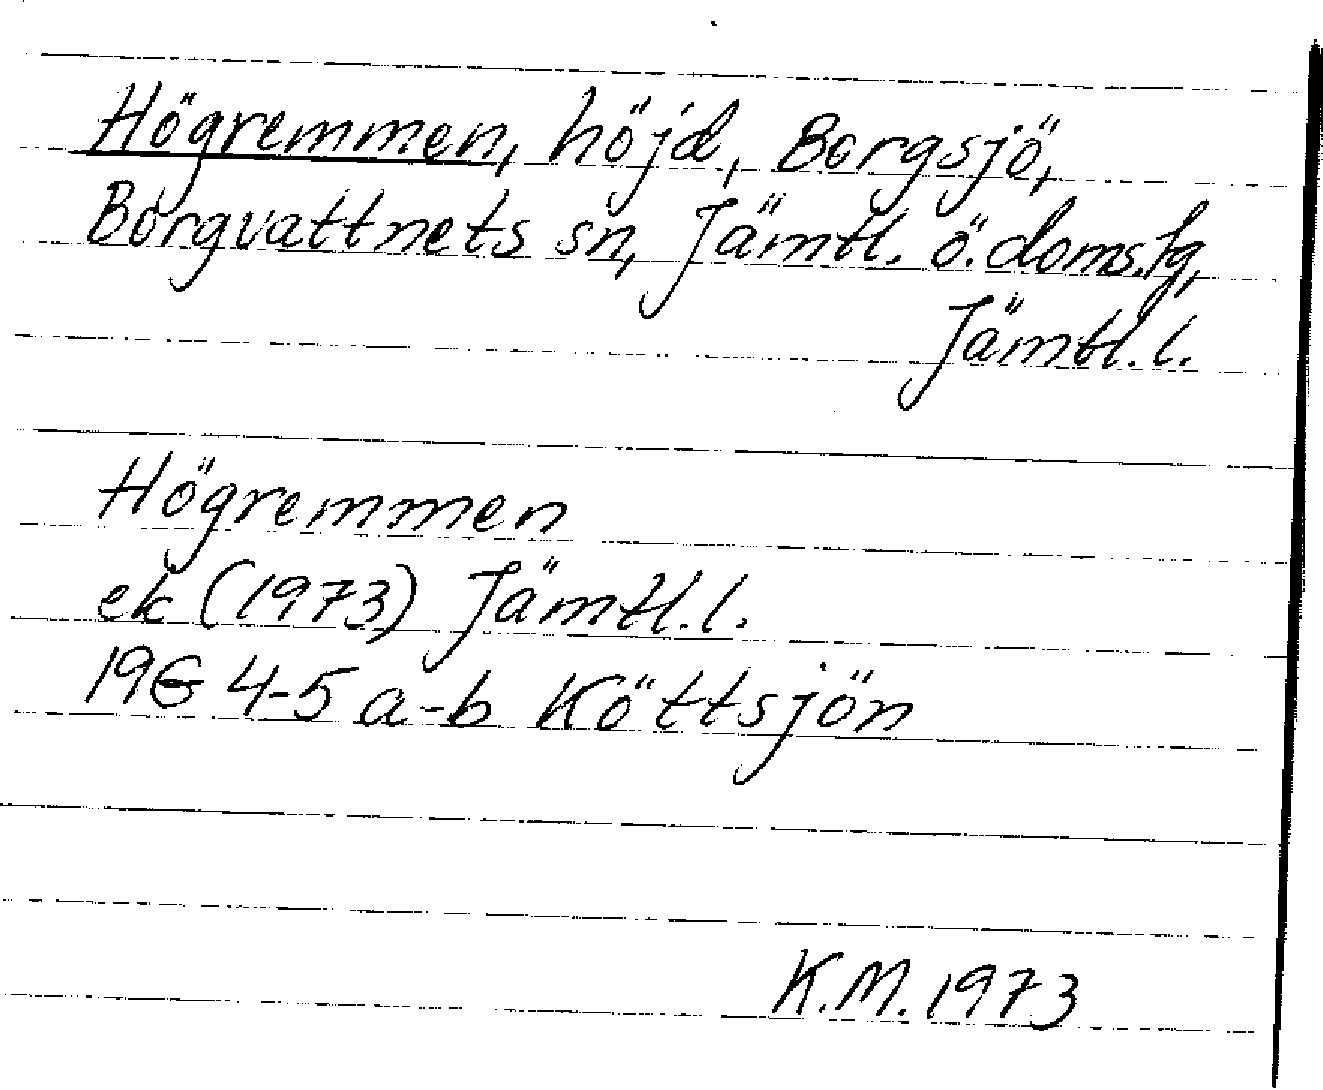 Högremmen, höjd, Borgsjö,
Borgvattnets sn, Jämtl. ö. doms.lg,
Jämtl. l.
Högremmen
ek (1973) Jämtl. l.
19G 4-5 a-b Köttsjön
K.M. 1973